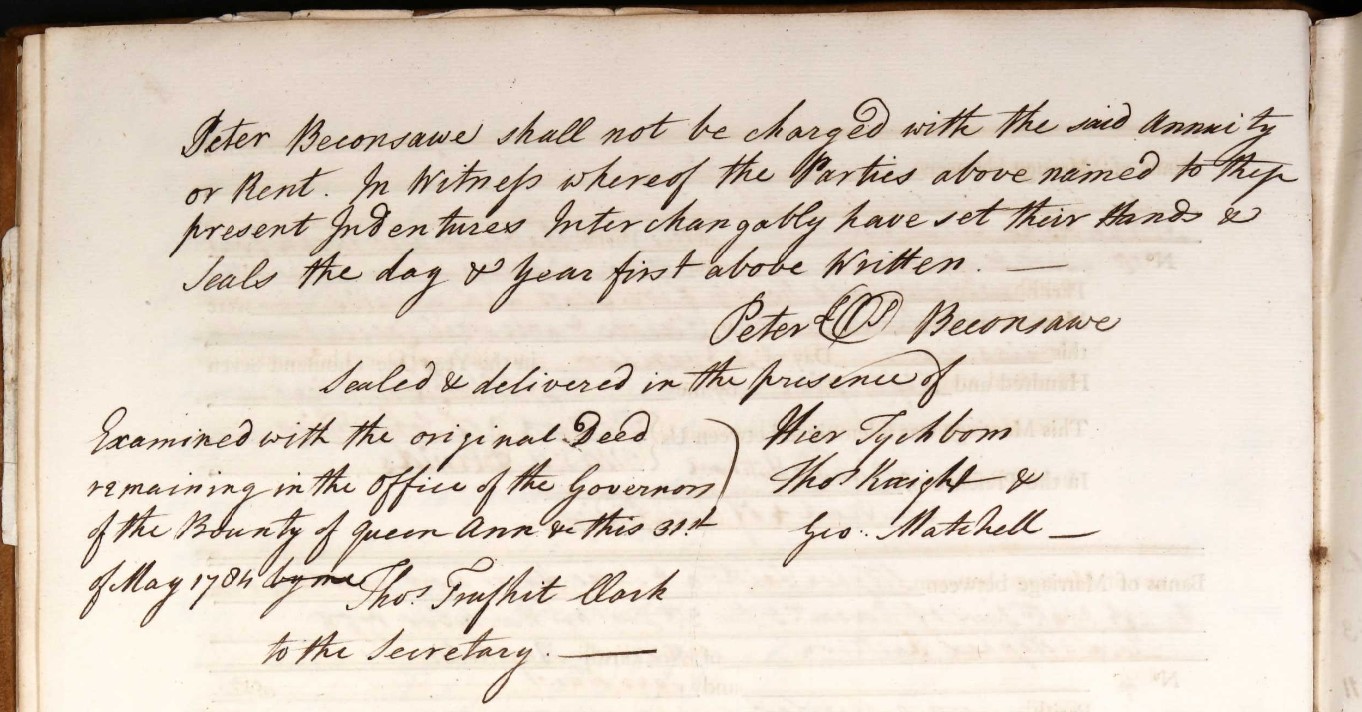 Peter Beconsawe shall not be charged with the said Annuity
or Rent. In Witneſs whereof the Parties above named to these
present Indentures Interchangably have set their Hands &
Seals the day & Year first above Written. —
Peter Beconsawe
Sealed & delivered in the presence of
Examined with the original Deed
remaining in the Office of the Governors
of the Bounty of Queen Ann & this 31st
of May 1784 by me
Hier Tychborn
Thos Knight &
Geo. Matchell —
Thos. Clark
to the Secretary. —